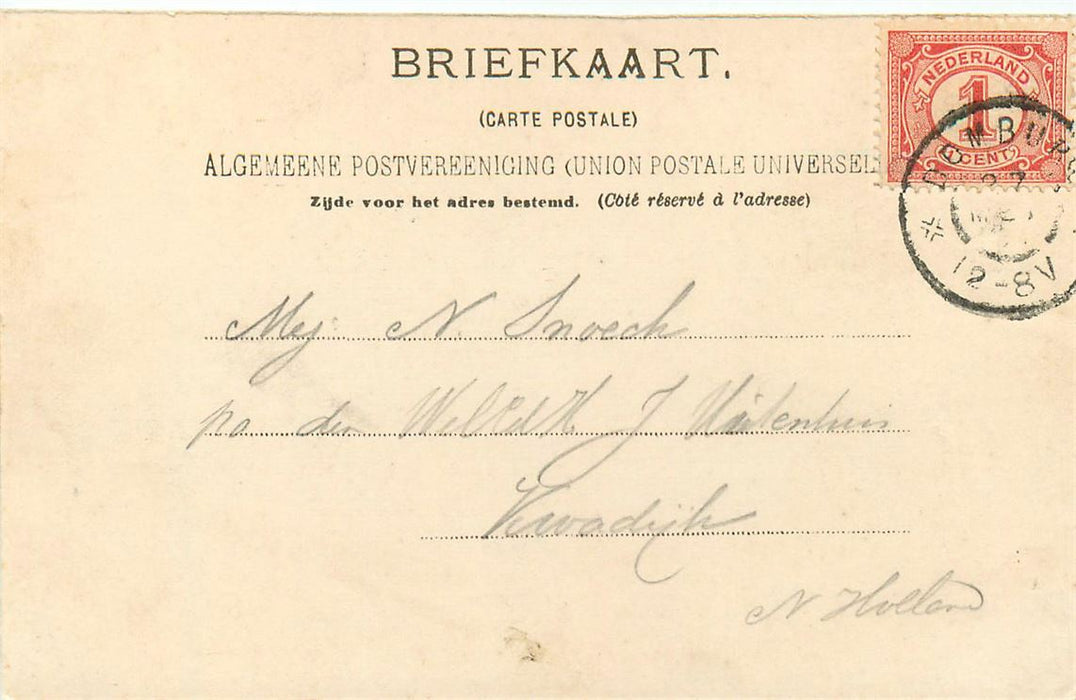 BRIEFKAART.
(CARTE POSTALE)
ALGEMEENE POSTVEREENIGING (UNION POSTALE UNIVERSEL
Zijde voor het adres bestemd. (Côté réservé à l'adresse)
NEDERLAND
1
CENT
DOMBURG
12-8V
Mej. N. Snoeck
pa den WelEdH. J Uitenhuis
Kwadijk
N. Holland